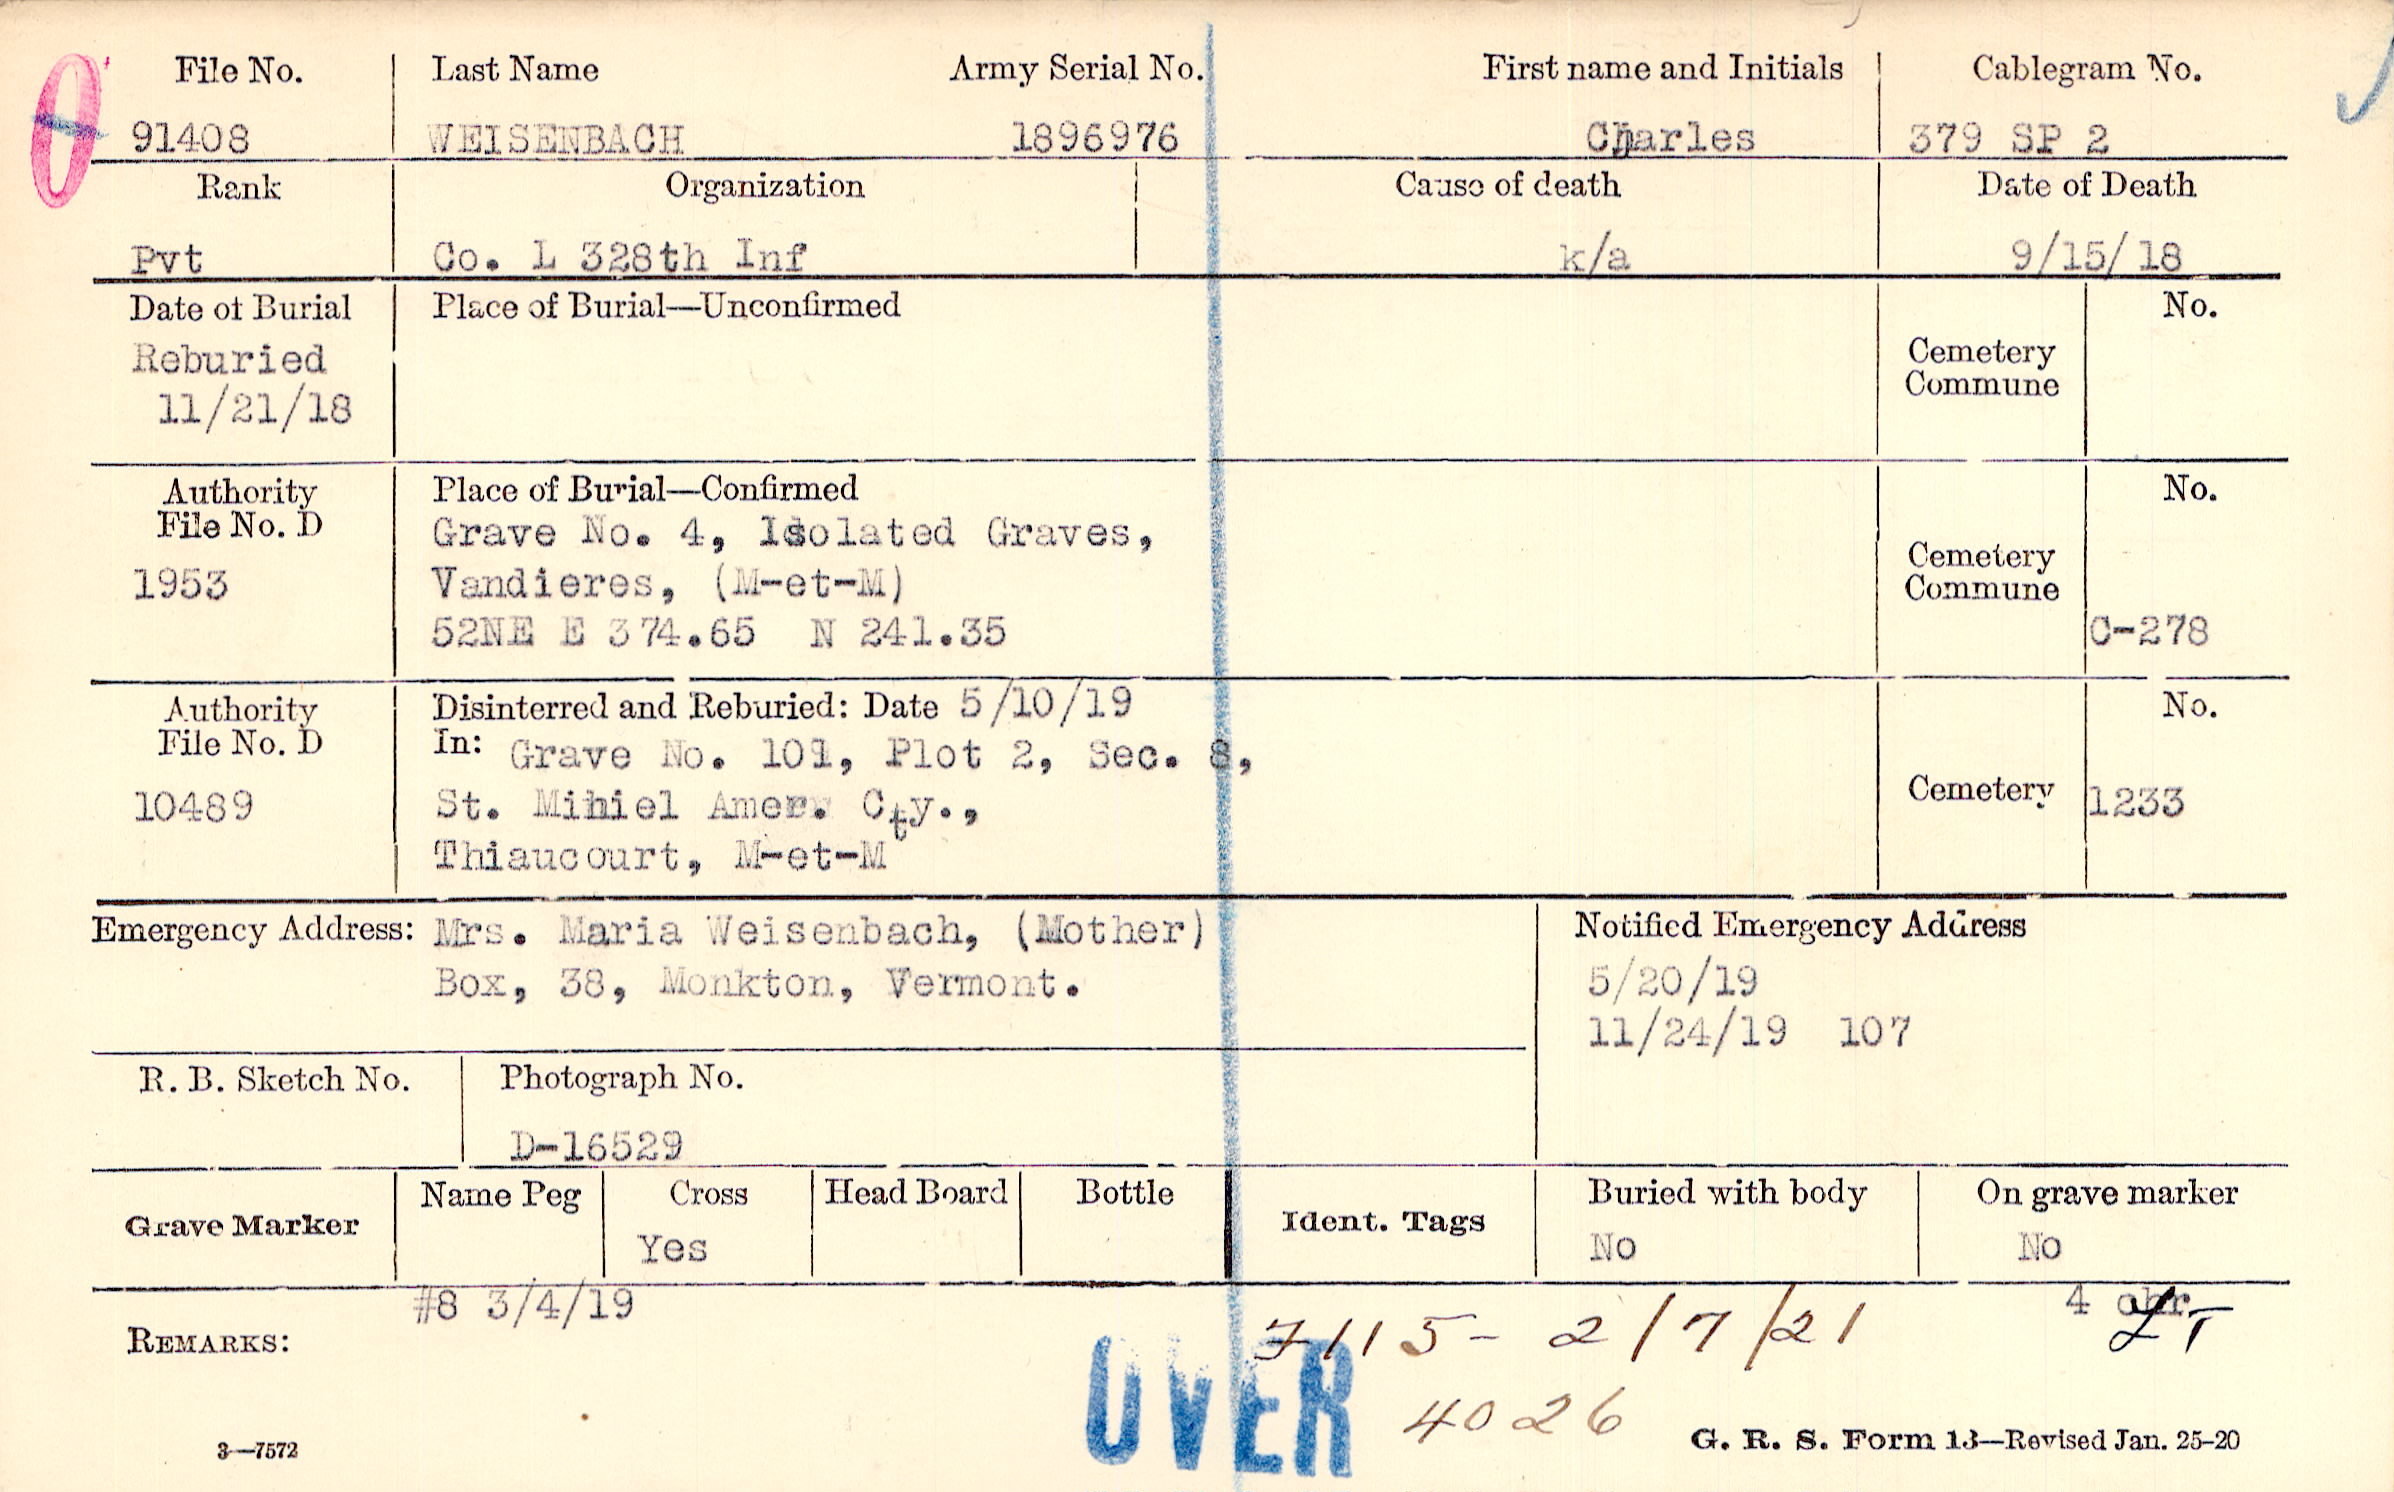 File No. Last Name Army Serial No. First name and Initials Cablegram No.
91408 WEISENBACH 1896976 Charles 379 SP 2
Rank Organization Cause of death Date of Death
Pvt Co. L 328th Inf k/a 9/15/18
Date of Burial Place of Burial—Unconfirmed No.
Reburied
11/21/18
Cemetery
Commune
Authority
File No. D
1953
Place of Burial—Confirmed
Grave No. 4, Isolated Graves,
Vandieres, (M-et-M)
52NE E 374.65 N 241.35
Cemetery
Commune
No.
C-278
Authority
File No. D
10489
Disinterred and Reburied: Date 5/10/19
In: Grave No. 101, Plot 2, Sec. 8,
St. Mihiel Amer. Cty.,
Thiaucourt, M-et-M
Cemetery
No.
1233
Emergency Address: Mrs. Maria Weisenbach, (Mother)
Box, 38, Monkton, Vermont.
Notified Emergency Address
5/20/19
11/24/19 107
R. B. Sketch No. Photograph No.
D-16529
Grave Marker
Name Peg Cross Head Board Bottle
Yes
Ident. Tags
Buried with body On grave marker
No No
#8 3/4/19
4 chr
REMARKS:
7115- 2/7/21
OVER
4026
3—7572
G. R. S. Form 13—Revised Jan. 25-20